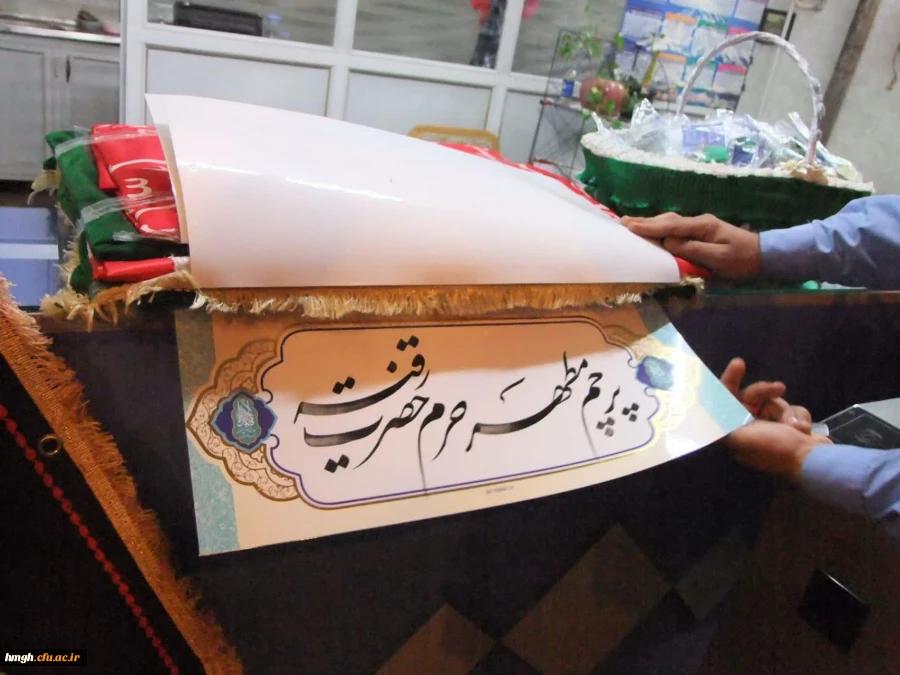 پرچم مطهر حرم حضرت رقیه
hmgh.cfu.ac.ir